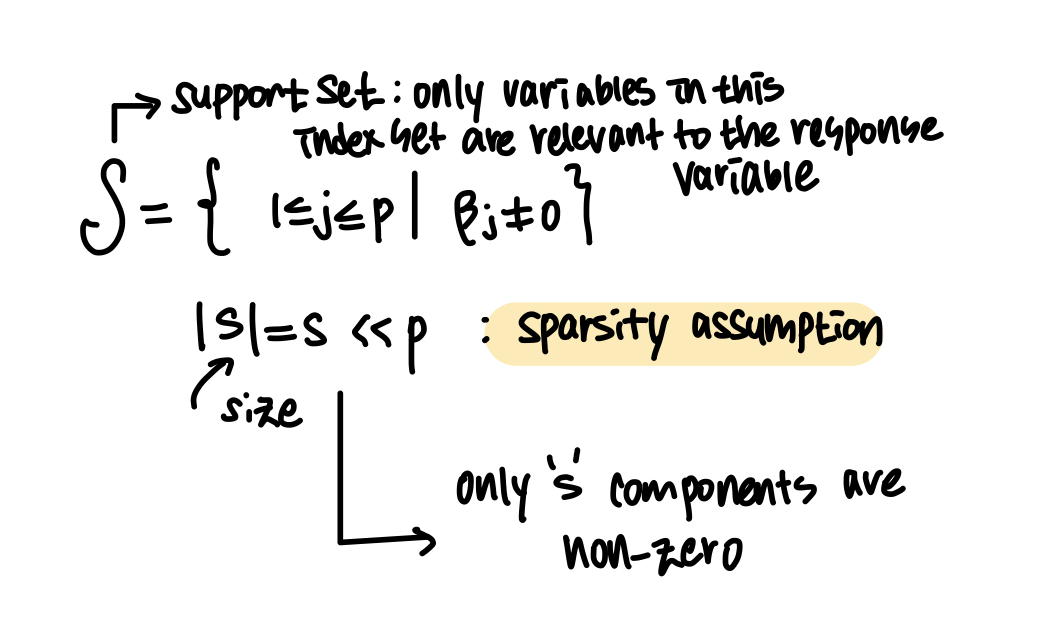 support set : only variables in this
index set are relevant to the response
variable
S = { 1≤j≤p | βj≠0 }
|S| = s << p : sparsity assumption
size
only 's' components are
non-zero